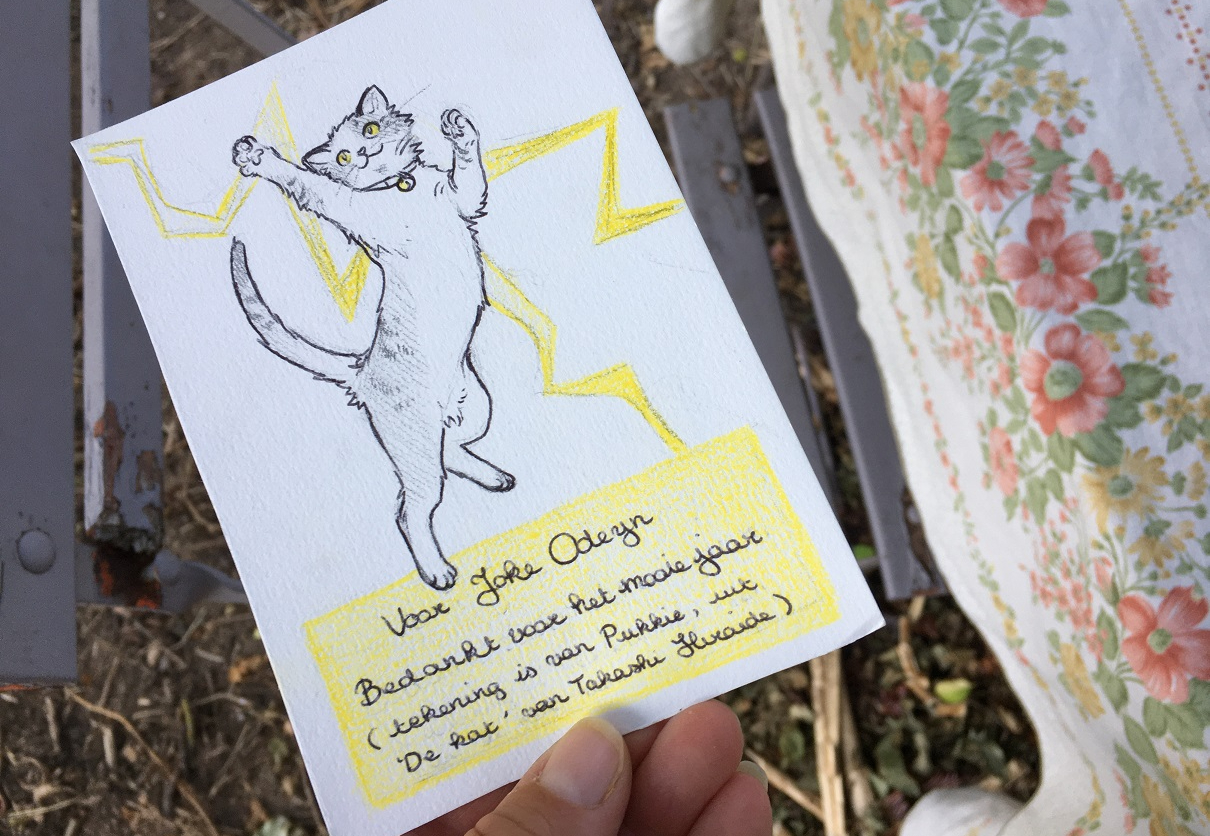 Voor Joke Odeyn
Bedankt voor het mooie jaar
(tekening is van Pukkie, uit
'De kat' van Takashi Hiraide)